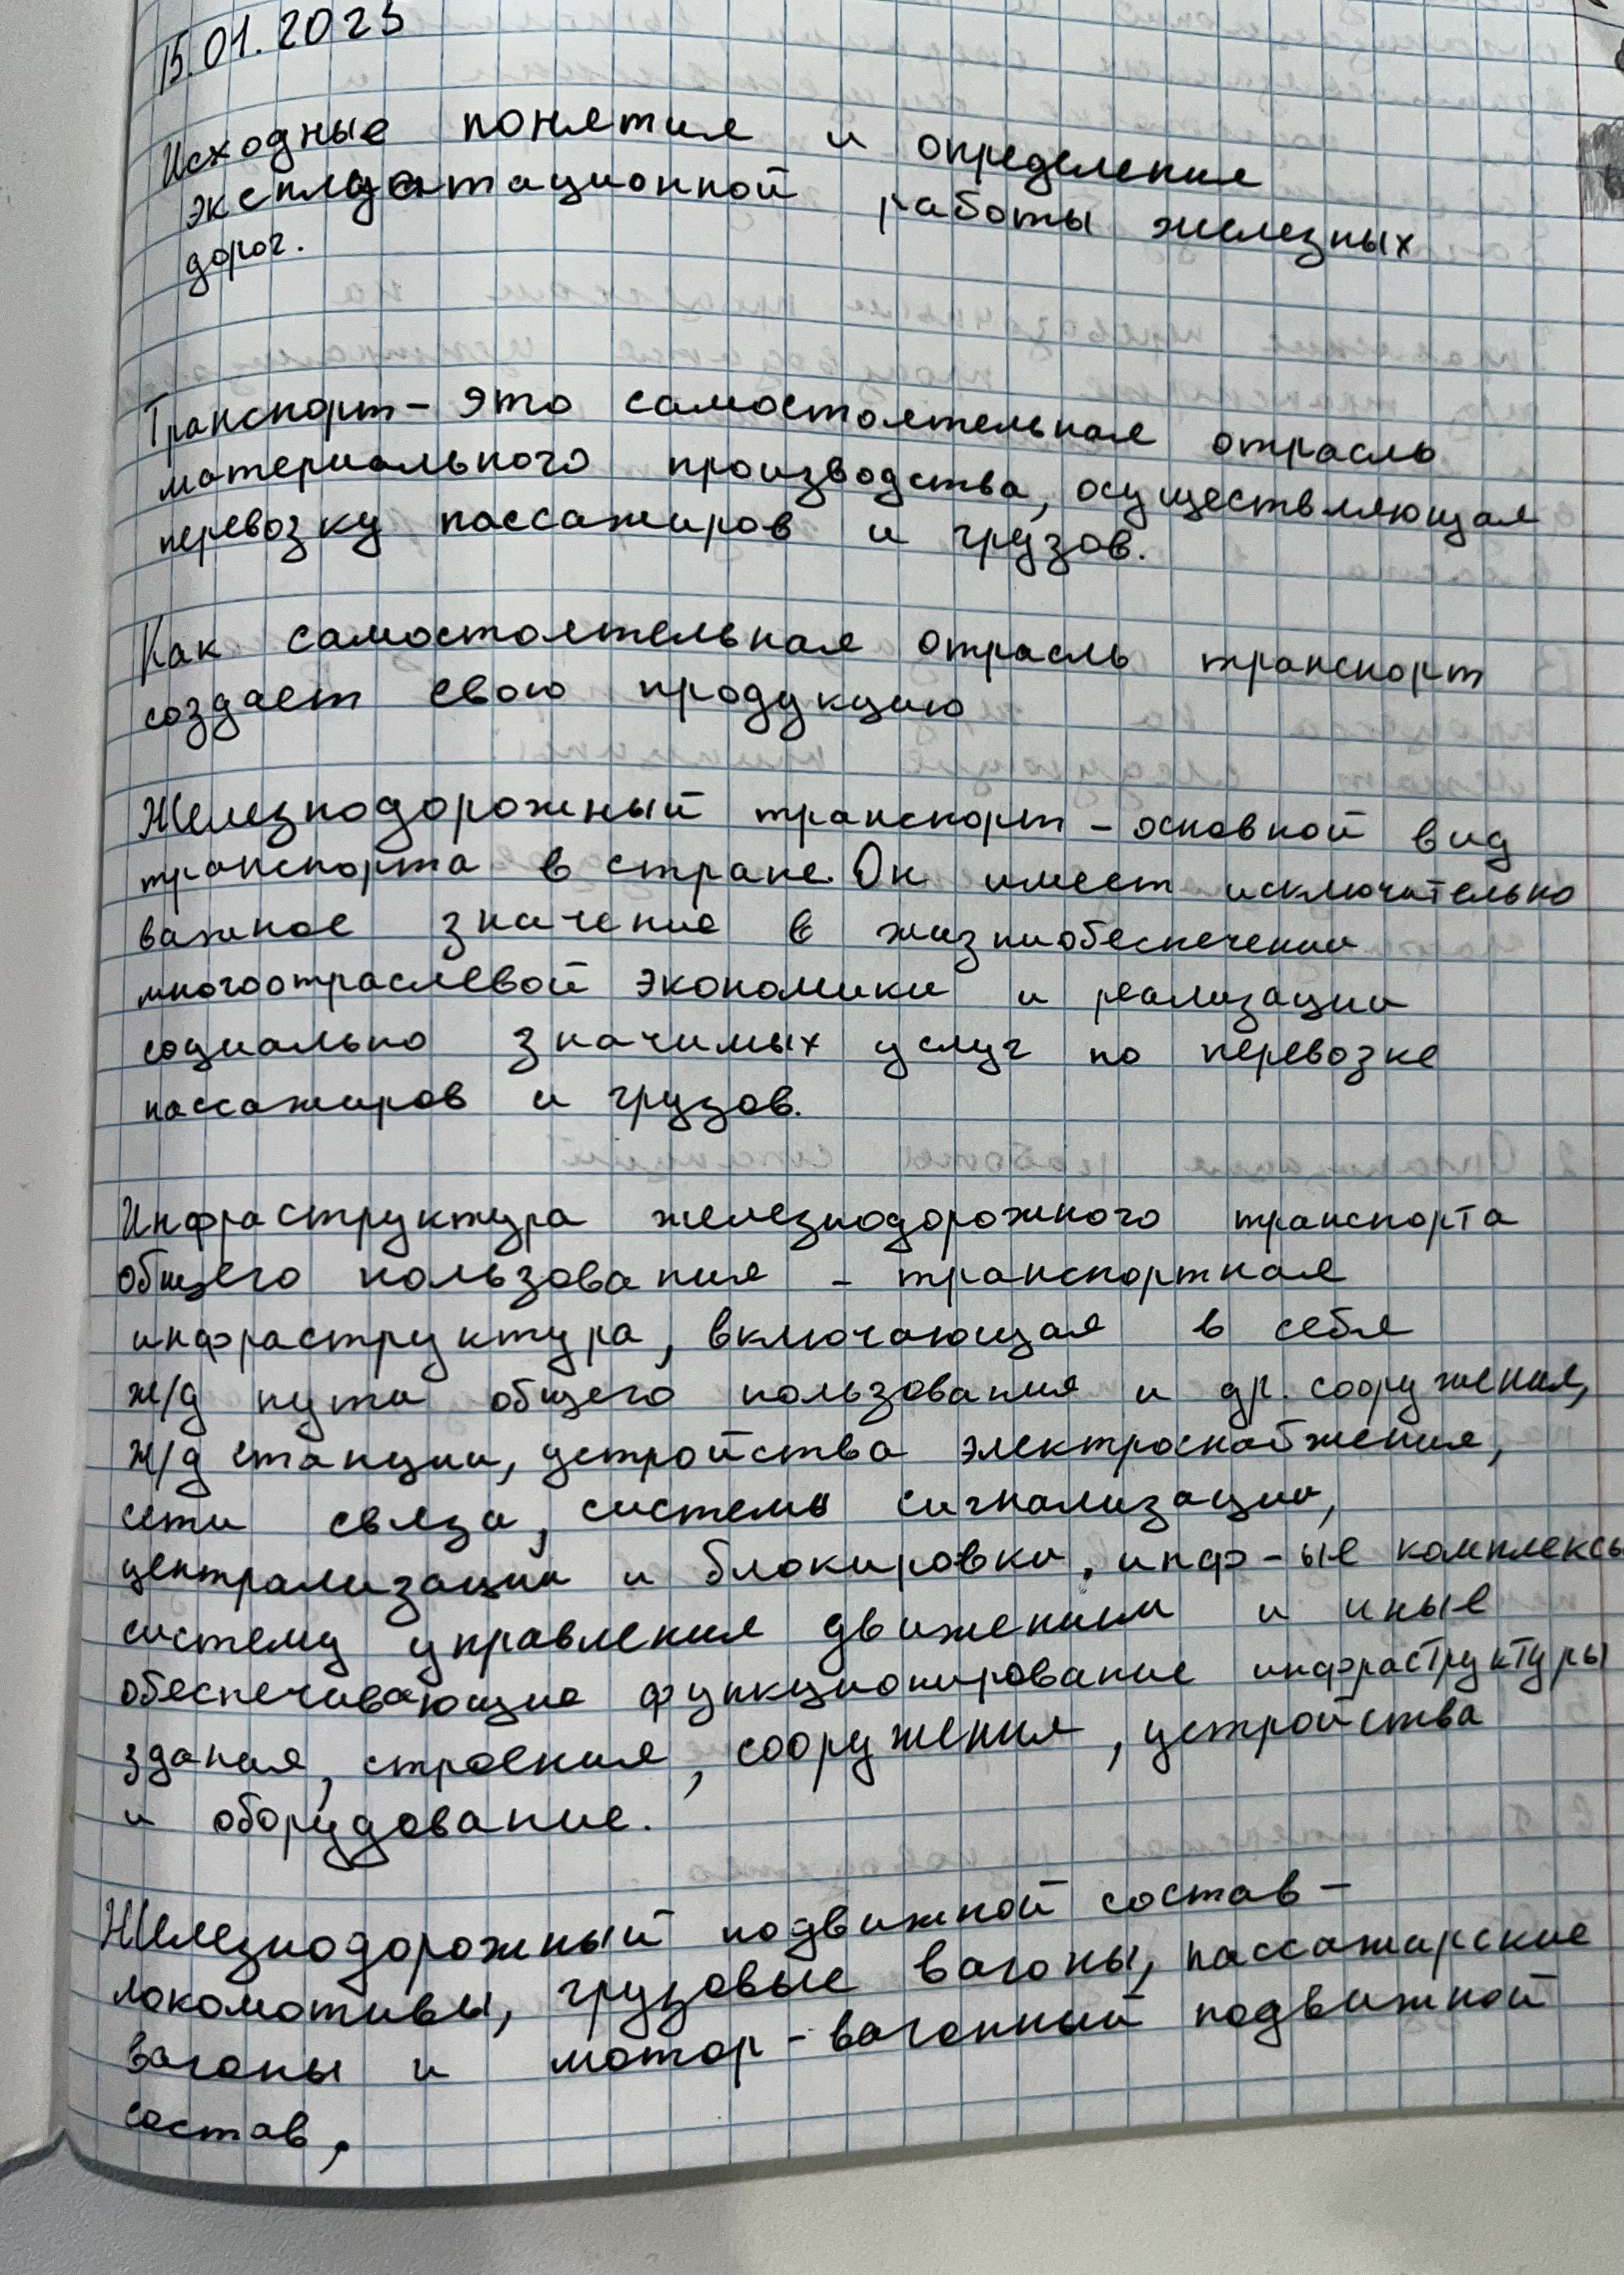 15.01.2023
Исходные понятия и определение
эксплуатационной работы железных
дорог.
Транспорт - это самостоятельная отрасль
материального производства, осуществляющая
перевозку пассажиров и грузов.
Как самостоятельная отрасль транспорт
создает свою продукцию
Железнодорожный транспорт - основной вид
транспорта в стране. Он имеет исключительно
важное значение в жизниобеспечении
многоотраслевой экономики и реализации
социально значимых услуг по перевозке
пассажиров и грузов.
Инфраструктура железнодорожного транспорта
общего пользования - транспортная
инфраструктура, включающая в себя
ж/д пути общего пользования и др. сооружения,
ж/д станции, устройства электроснабжения,
сети связи, системы сигнализации,
централизации и блокировки, инф-ые комплексы
систему управления движением и иные
обеспечивающие функционирование инфраструктуры
здания, строения, сооружения, устройства
и оборудование.
Железнодорожный подвижной состав -
локомотивы, грузовые вагоны, пассажирские
вагоны и мотор-вагонный подвижной
состав,